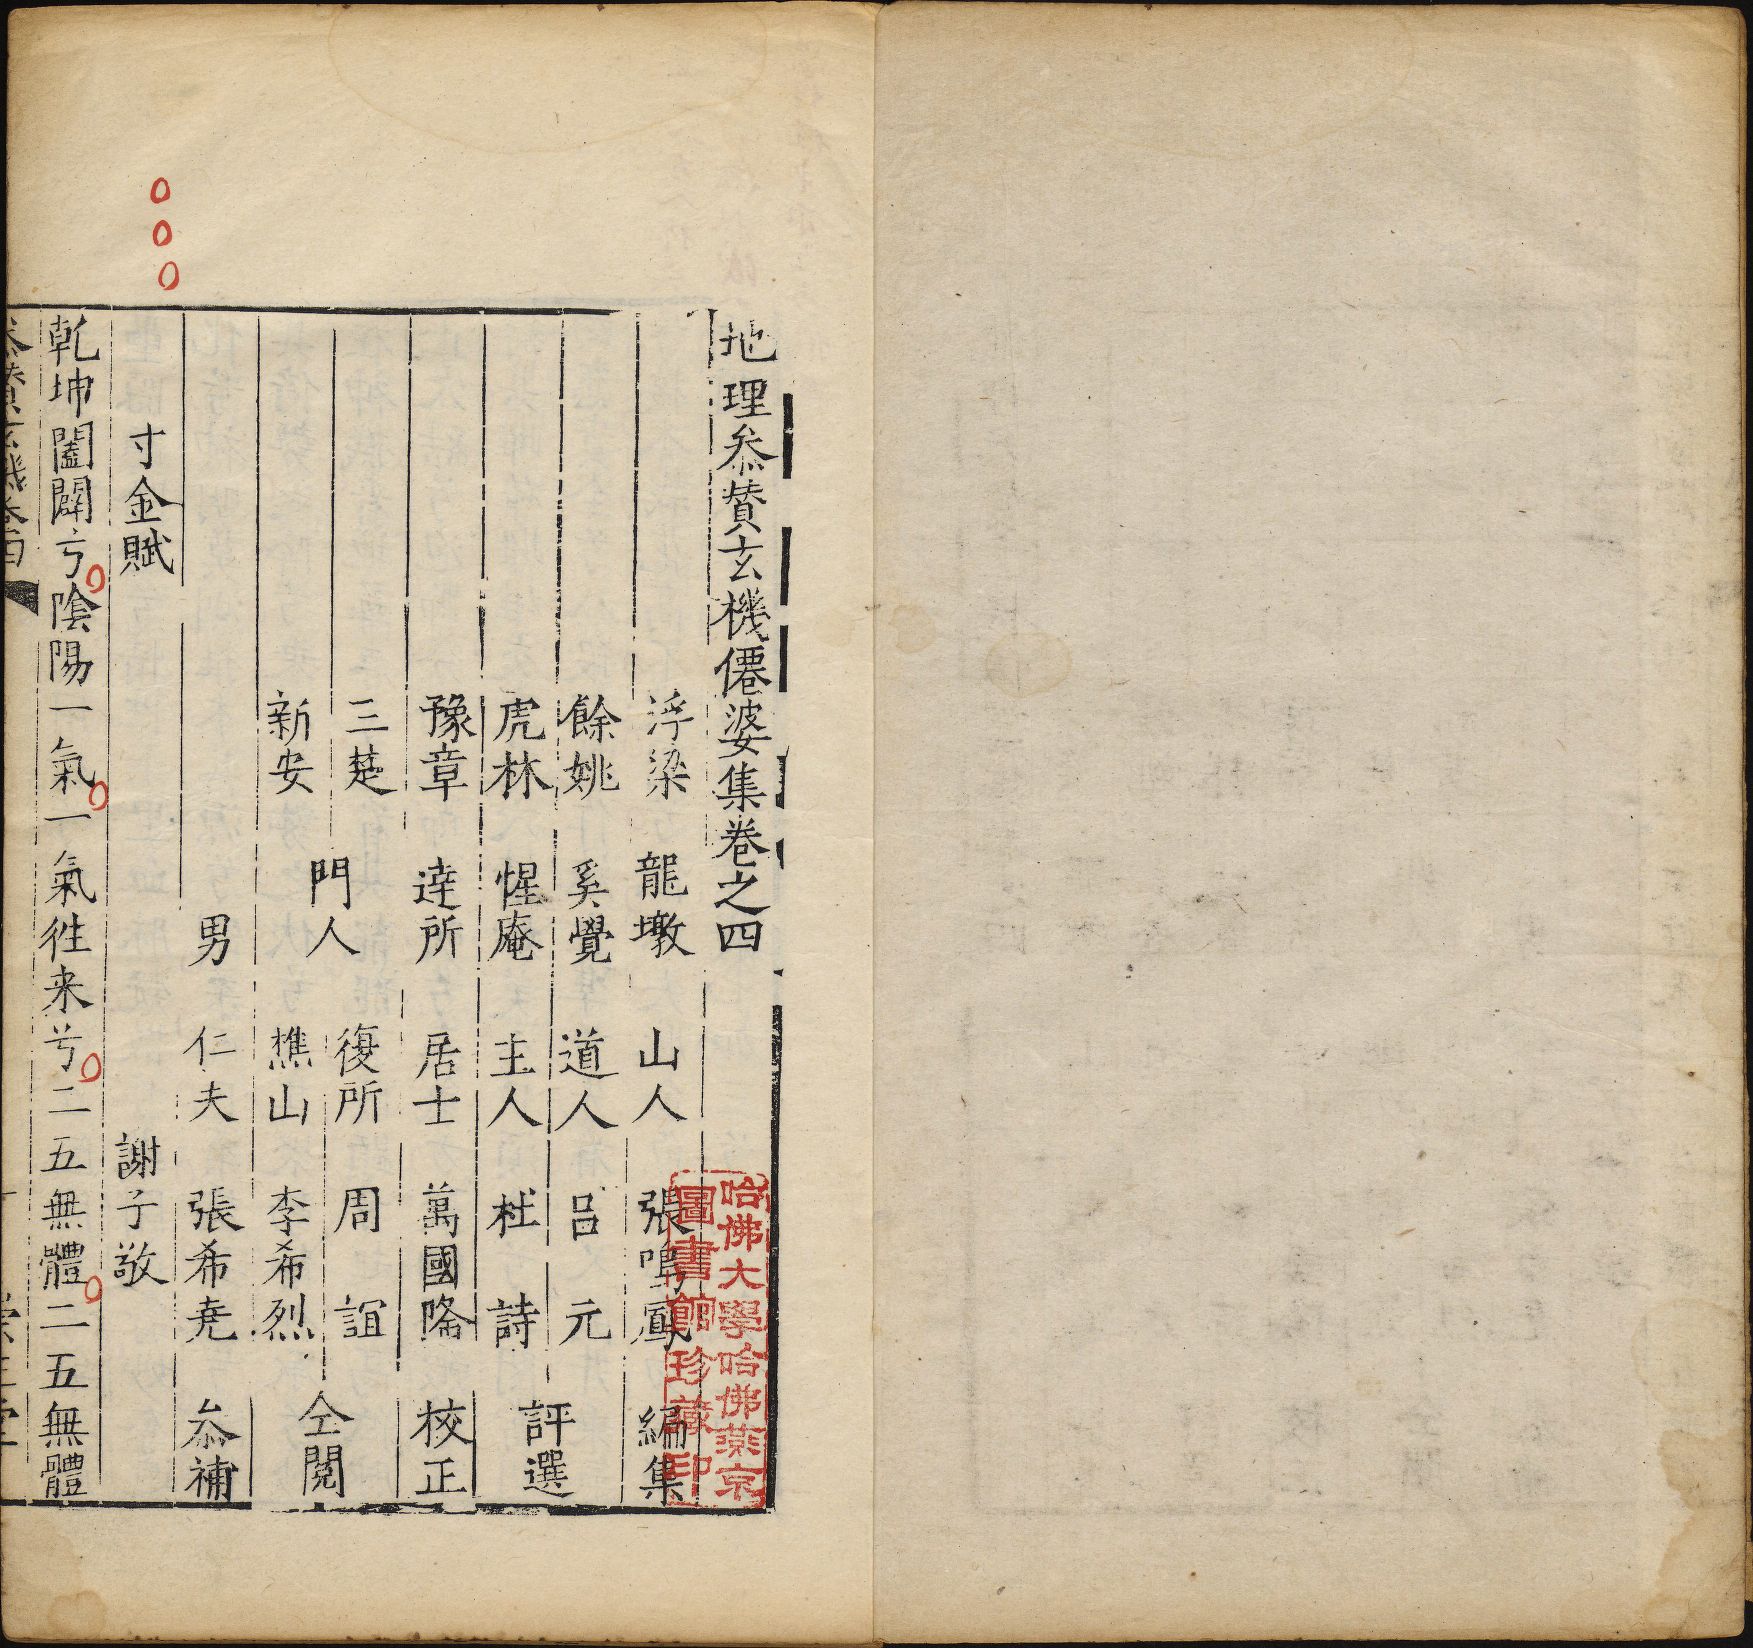 地理叅賛玄機僊婆集卷之四
浮梁 龍墩 山人 張鳴鳳 編集
餘姚 奚覺 道人 吕元
虎林 惺庵 主人 杜詩 評選
豫章 逹所 居士 萬國隆 校正
三楚 復所 周誼
門人 仝閱
新安 樵山 李希烈
男 仁夫 張希尭 叅補
寸金賦 謝子敬
乾坤闔闢兮陰陽一氣一氣徃来兮二五無體二五無體
叅賛玄機卷四
哈佛大學哈佛燕京
圖書館珍藏印